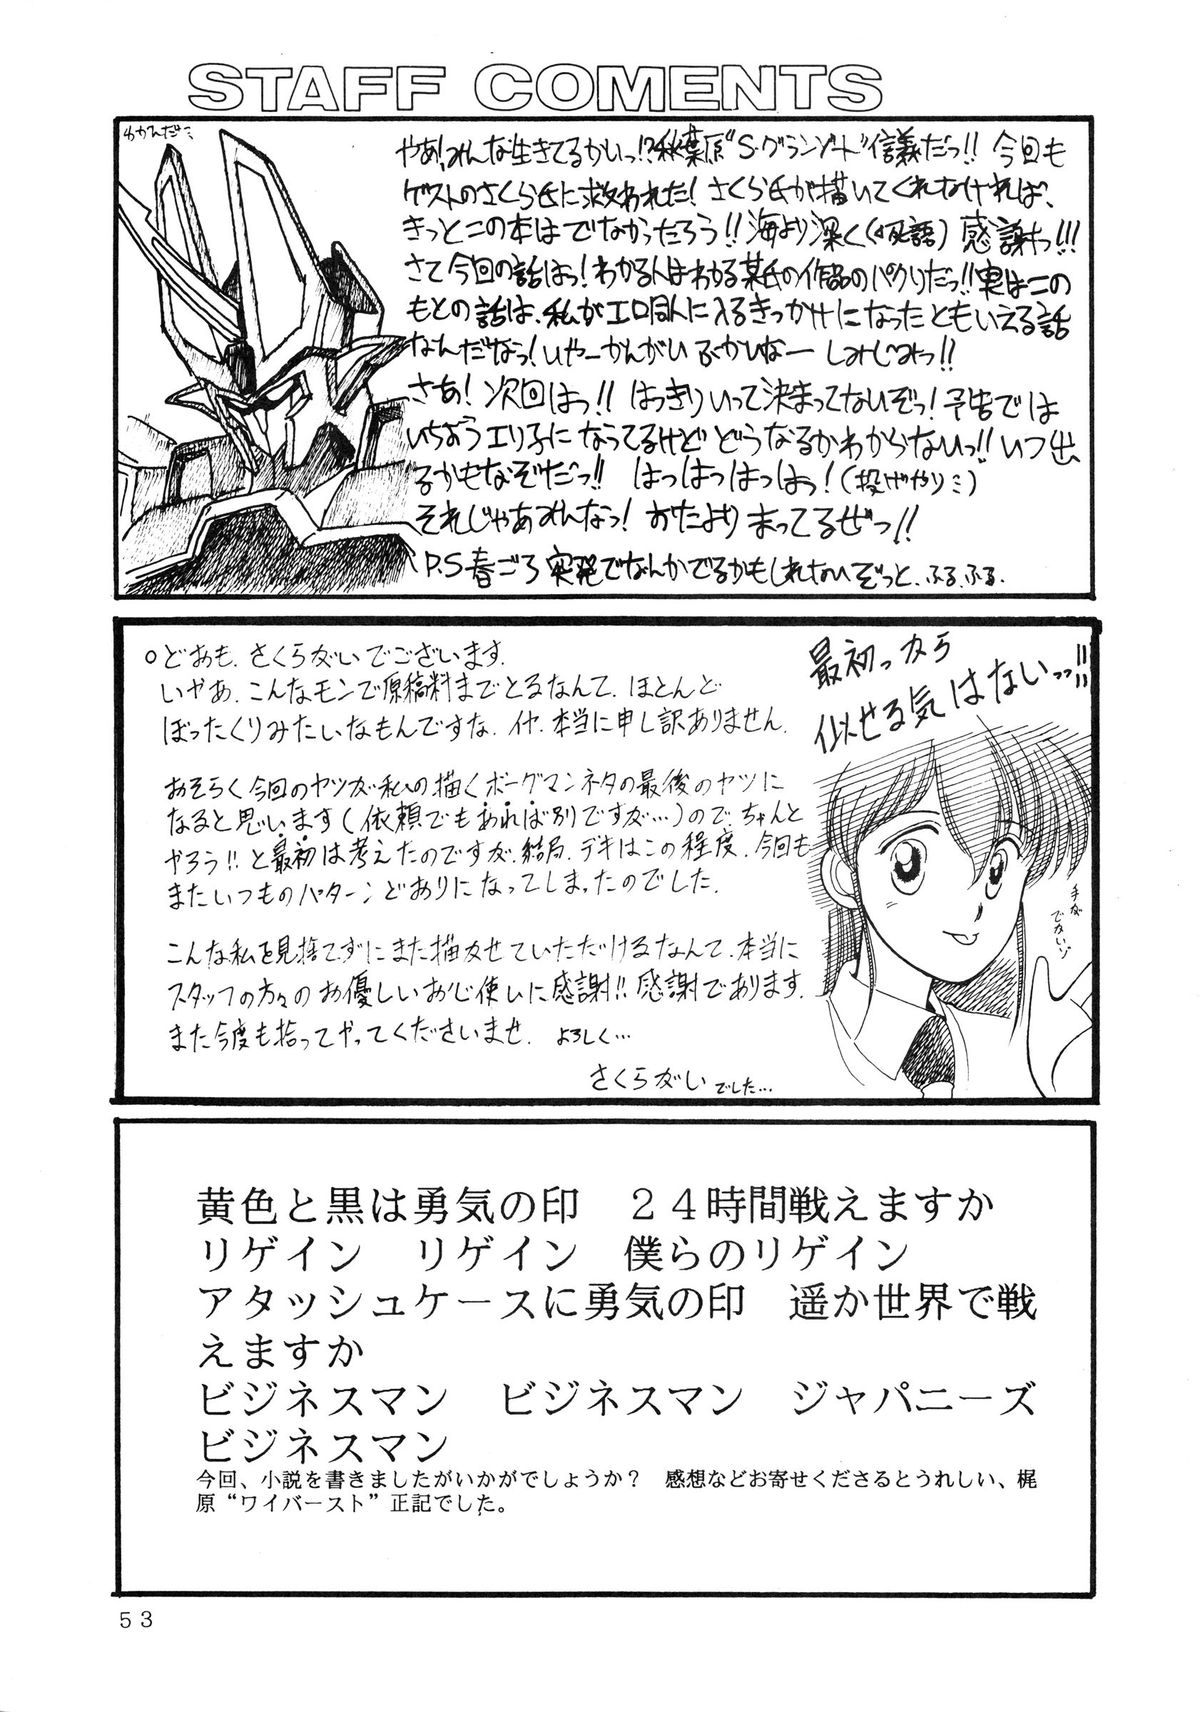 STAFF COMENTS
やあ!みんな生きてるかいっ!?秋葉原"S・グランゾート"信義だっ!! 今回も
ゲストのさくら氏に救われた!さくら氏が描いてくれなければ、
きっとこの本はでなかったろう!!海より深く( 語)感謝っ!!!
さて今回の話はっ!わかる人はわかる某氏の作品のパクリだっ!!実はこの
もとの話は、私がエロ同人に入るきっかけになったともいえる話
なんだなっ!いやーかんがいぶかいなー しみじみっ!!
さあ!次回はっ!! はっきりいって決まってないぞっ!予告では
いちおうエリ子になってるけどどうなるかわからないっ!!いつ出
るかもなぞだっ!! はっはっはっはっ!(投げやりミ)
それじゃあみんなっ!おたよりまってるぜっ!!
P.S春ごろ突発でなんかでるかもしれないぞっと.ふる.ふる.
○どおも.さくらがいでございます.
いやあ.こんなモンで原稿料までとるなんて.ほとんど
ぼったくりみたいなもんですな.イヤ.本当に申し訳ありません.
おそらく今回のヤツが私の描くボーグマンネタの最後のヤツに
なると思います(依頼でもあれば別ですが…)ので.ちゃんと
やろう!!と最初は考えたのですが.結局.デキはこの程度.今回も
またいつものパターンどおりになってしまったのでした.
こんな私を見捨てずにまた描かせていただけるなんて.本当に
スタッフの方々のお優しいお心使いに感謝!!感謝であります.
また今度も拾ってやってくださいませ. よろしく…
さくらがい でした…
最初っから
似せる気はないっっ!!
手が
でないゾ
黄色と黒は勇気の印　２４時間戦えますか
リゲイン　リゲイン　僕らのリゲイン
アタッシュケースに勇気の印　遥か世界で戦
えますか
ビジネスマン　ビジネスマン　ジャパニーズ
ビジネスマン
今回、小説を書きましたがいかがでしょうか？　感想などお寄せくださるとうれしい、梶
原“ワイバースト”正記でした。
５３